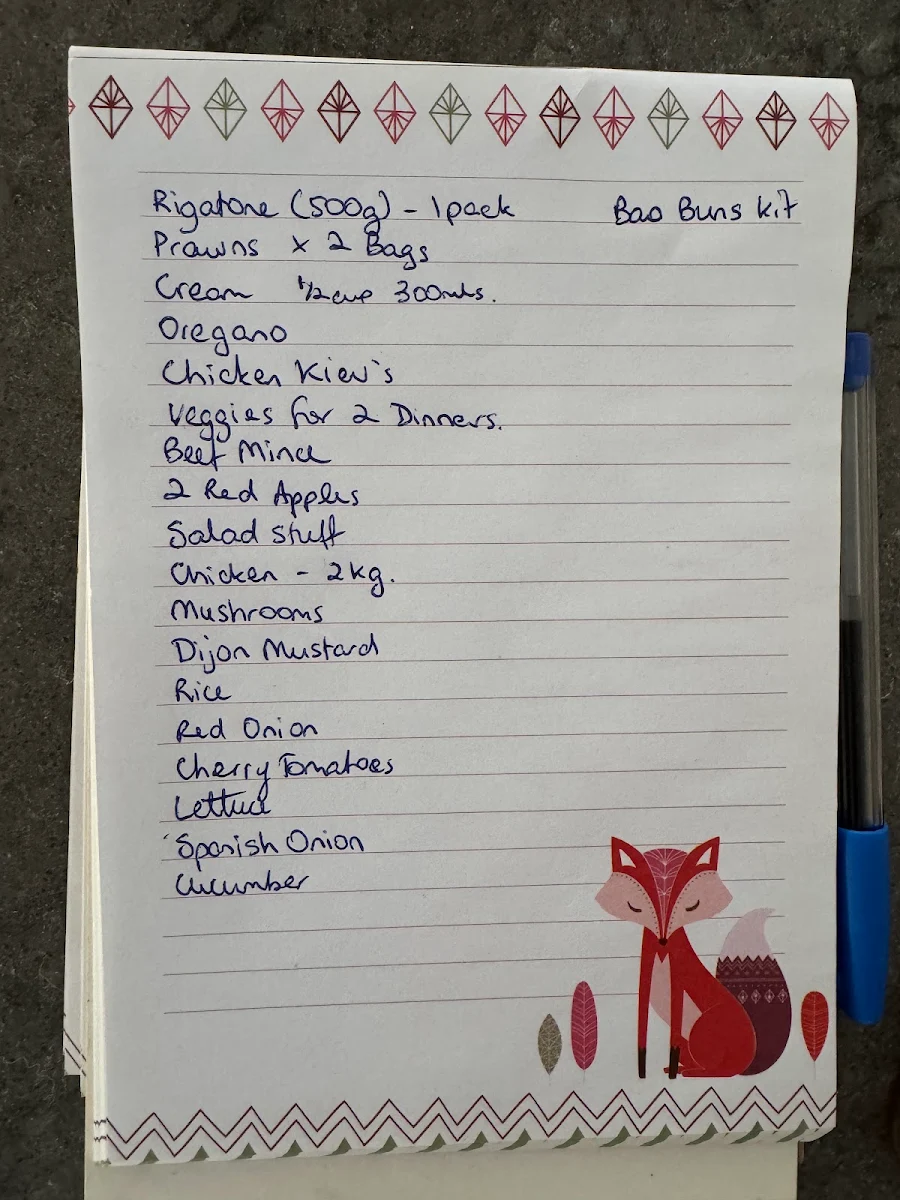 Rigatone (500g) - 1 pack Bao Buns Kit
Prawns x 2 Bags
Cream 1/2 cup 300mls.
Oregano
Chicken Kiev's
Veggies for 2 Dinners.
Beef Mince
2 Red Apples
Salad Stuff
Chicken - 2kg.
Mushrooms
Dijon Mustard
Rice
Red Onion
Cherry Tomatoes
Lettuce
Spanish Onion
Cucumber